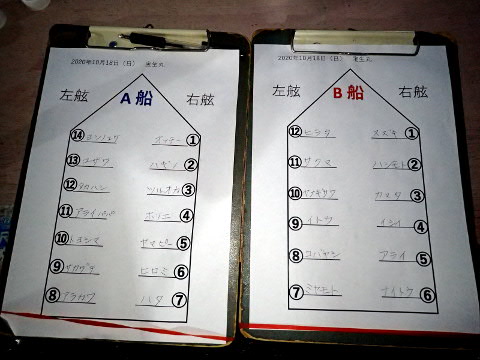 2020年10月18日（日）　来生丸
左舷 A船 右舷
⑭ ①
⑬ ユザワ ハギノ ②
⑫ タカハシ ツルオカ ③
⑪ アライ ホリエ ④
⑩ トヨシマ ヤマピー ⑤
⑨ ヒロミ ⑥
⑧ アラカワ ハタ ⑦
2020年10月18日（日）　来生丸
左舷 B船 右舷
⑫ ヒラタ スズキ ①
⑪ サクマ ハシモト ②
⑩ ヤナギサワ カマタ ③
⑨ イトウ イシイ ④
⑧ コバヤシ アライ ⑤
⑦ ミヤモト ナイトウ ⑥